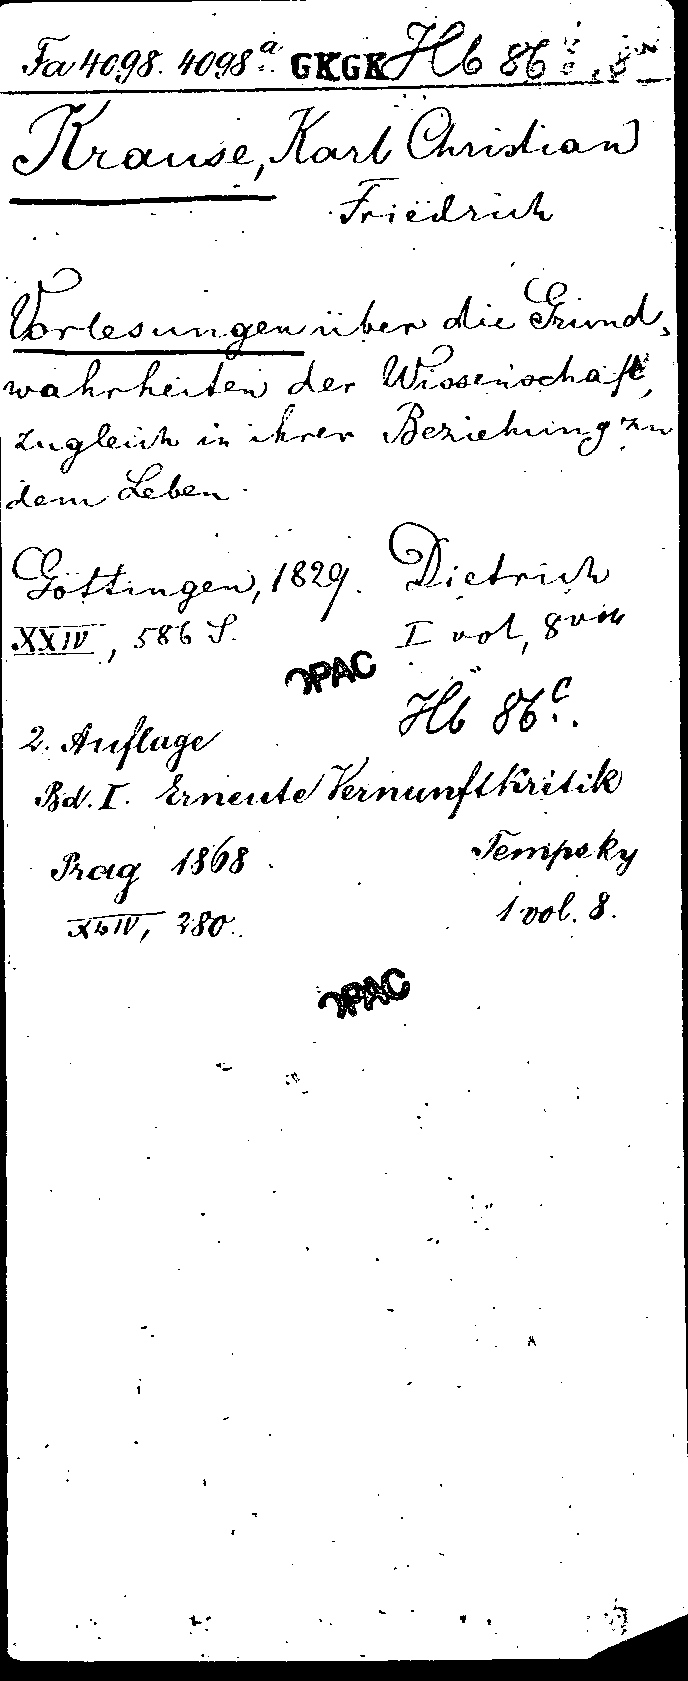 Fa 4098. 4098a. GKGK Hb 86
Krause, Karl Christian
Friedrich
Vorlesungen über die Grund-
wahrheiten der Wissenschaft,
zugleich in ihrer Beziehung zu
dem Leben.
Göttingen, 1829. Dietrich
XXIV, 586 S. I vol, 8vo
OPAC
Hb 86c.
2. Auflage
Bd. I. Erneute Vernunftkritik
Prag 1868. Tempsky
XLIV, 280. 1 vol. 8.
OPAC